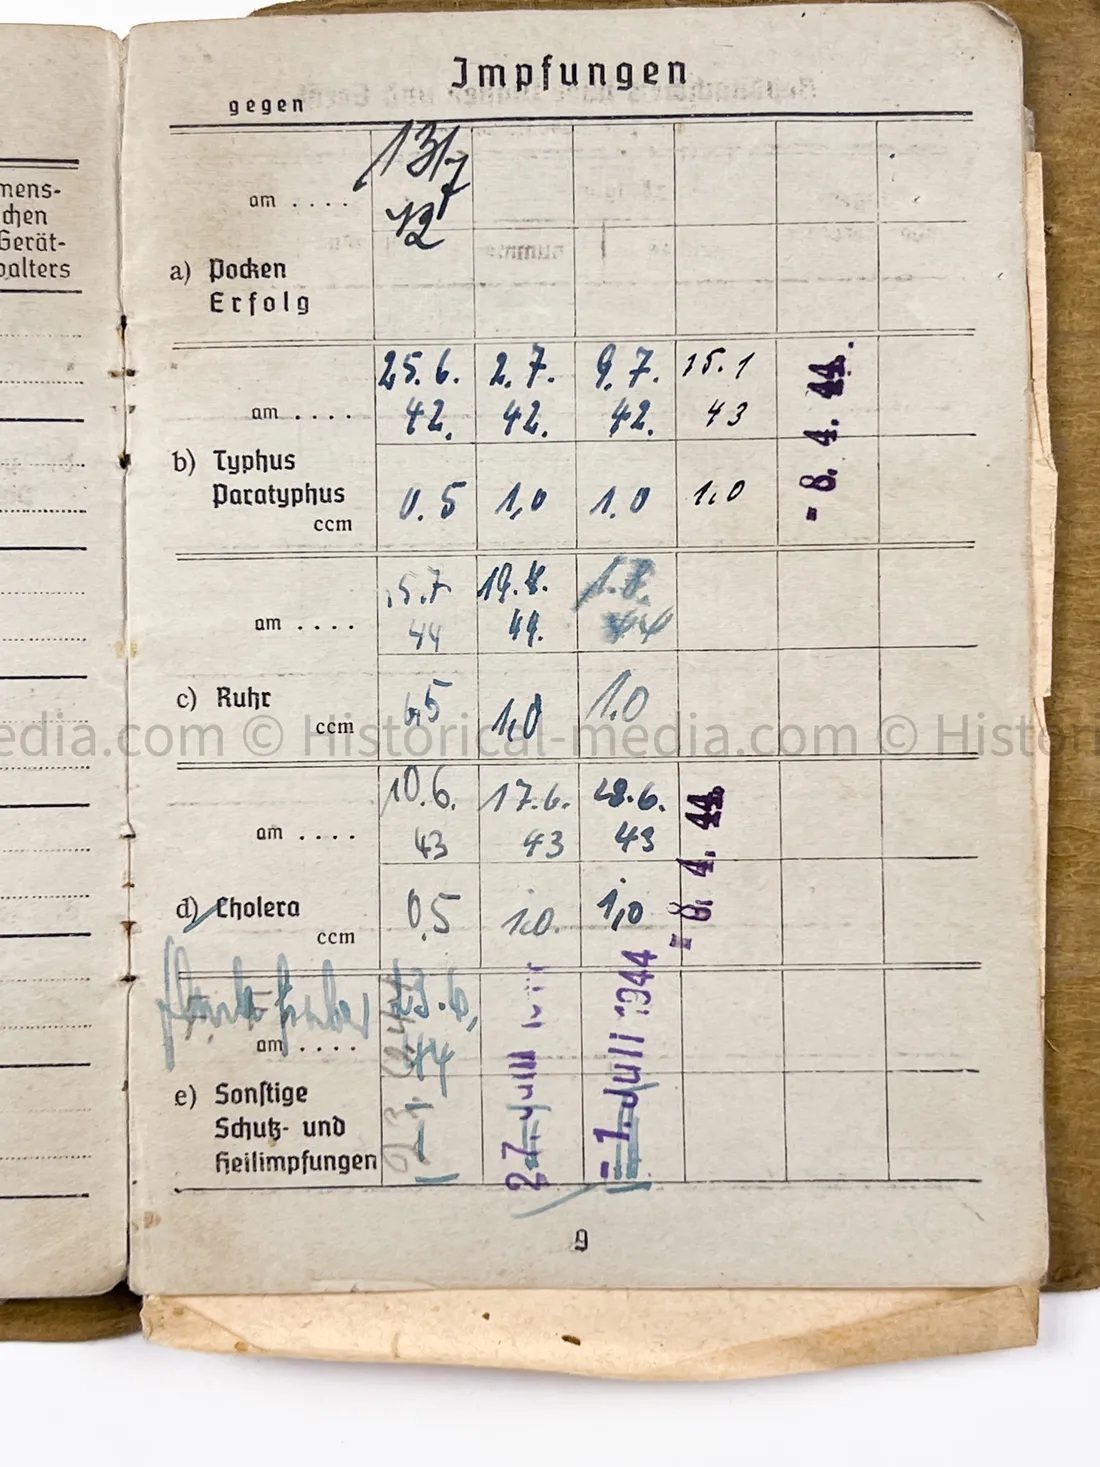 Impfungen
gegen
13/7
am . . . . 42
a) Pocken
Erfolg
25.6. 2.7. 9.7. 15.1
am . . . . 42. 42. 42. 43
- 8. 4. 44.
b) Typhus
Paratyphus
ccm 0.5 1,0 1.0 1.0
5.7 19.8. 1.8.
am . . . . 44 44. 44
c) Ruhr
ccm 0,5 1,0 1.0
mens-
chen
Gerät-
balters
edia.com © Historical-media.com © Histor
10.6. 17.6. 28.6.
am . . . . 43 43 43
- 8. 4. 44
d) Cholera
ccm 0,5 1.0. 1,0
23.6.
am . . . . 44
27. Juli
- 1. Juli 1944
e) Sonstige
Schutz- und
Heilimpfungen
9